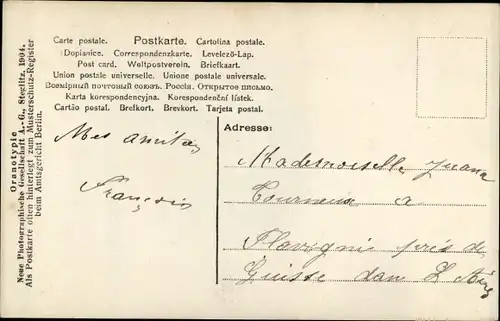 Carte postale. Postkarte. Cartolina postale.
Dopisnice. Correspondenzkarte. Levelező-Lap.
Post card. Weltpostverein. Briefkaart.
Union postale universelle. Unione postale universale.
Всемірный почтовый союзъ. Россія. Открытое письмо.
Karta korespondencyjna. Korespondenční lístek.
Cartão postal. Brefkort. Brevkort. Tarjeta postal.
Oranotypie
Neue Photographische Gesellschaft A.-G., Steglitz, 1904.
Als Postkarte offen hinterlegt zum Musterschutz-Register
beim Amtsgericht Berlin.
Mes amitiés
François
Adresse:
Mademoiselle Juana
Tourneux a
Flavignie près de
Guisse dan L